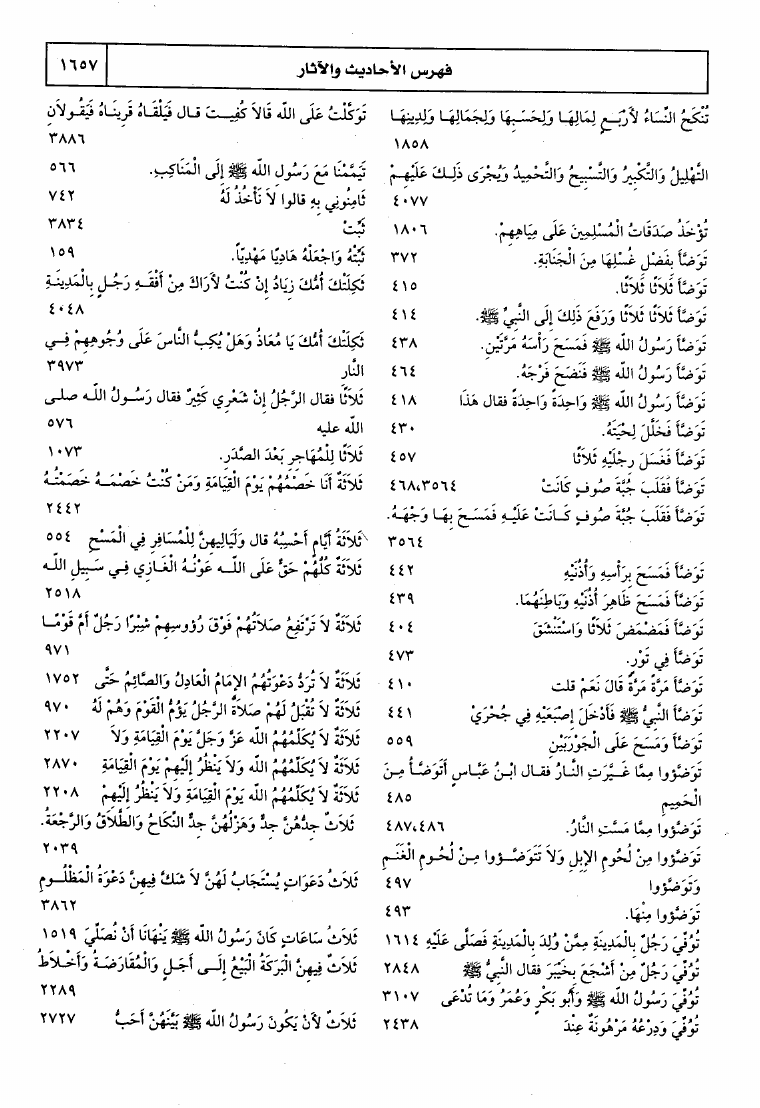 فهرس الأحاديث والآثار
١٦٥٧
تُنْكَحُ النِّسَاءُ لأَرْبَعٍ لِمَالِهَا وَلِحَسَبِهَا وَلِجَمَالِهَا وَلِدِينِهَا
١٨٥٨
التَّهْلِيلُ وَالتَّكْبِيرُ وَالتَّسْبِيحُ وَالتَّحْمِيدُ وَيُجْرَى ذَلِكَ عَلَيْهِمْ
٤٠٧٧
تُؤْخَذُ صَدَقَاتُ الْمُسْلِمِينَ عَلَى مِيَاهِهِمْ. ١٨٠٦
تَوَضَّأَ بِفَضْلِ غُسْلِهَا مِنَ الْجَنَابَةِ. ٣٧٢
تَوَضَّأَ ثَلاَثًا ثَلاَثًا. ٤١٥
تَوَضَّأَ ثَلاَثًا ثَلاَثًا وَرَفَعَ ذَلِكَ إِلَى النَّبِيِّ ﷺ. ٤١٤
تَوَضَّأَ رَسُولُ اللَّه ﷺ فَمَسَحَ رَأْسَهُ مَرَّتَيْنِ. ٤٣٨
تَوَضَّأَ رَسُولُ اللَّه ﷺ فَنَضَحَ فَرْجَهُ. ٤٦٤
تَوَضَّأَ رَسُولُ اللَّه ﷺ وَاحِدَةً وَاحِدَةً فقال هَذَا ٤١٨
تَوَضَّأَ فَخَلَّلَ لِحْيَتَهُ. ٤٣٠
تَوَضَّأَ فَغَسَلَ رِجْلَيْهِ ثَلاَثًا ٤٥٧
تَوَضَّأَ فَقَلَبَ جُبَّةَ صُوفٍ كَانَتْ ٤٦٨،٣٥٦٤
تَوَضَّأَ فَقَلَبَ جُبَّةَ صُوفٍ كَانَتْ عَلَيْهِ فَمَسَحَ بِهَا وَجْهَهُ.
٣٥٦٤
تَوَضَّأَ فَمَسَحَ بِرَأْسِهِ وَأُذُنَيْهِ ٤٤٢
تَوَضَّأَ فَمَسَحَ ظَاهِرَ أُذُنَيْهِ وَبَاطِنَهُمَا. ٤٣٩
تَوَضَّأَ فَمَضْمَضَ ثَلاَثًا وَاسْتَنْشَقَ ٤٠٤
تَوَضَّأَ فِي تَوْرٍ. ٤٧٣
تَوَضَّأَ مَرَّةً مَرَّةً قَالَ نَعَمْ قلت ٤١٠
تَوَضَّأَ النَّبِيُّ ﷺ فَأَدْخَلَ إِصْبَعَيْهِ فِي جُحْرَيْ ٤٤١
تَوَضَّأَ وَمَسَحَ عَلَى الْجَوْرَبَيْنِ ٥٥٩
تَوَضَّؤوا مِمَّا غَيَّرَتِ النَّارُ فقال ابْنُ عَبَّاسٍ أَتَوَضَّأُ مِنَ
الْحَمِيمِ ٤٨٥
تَوَضَّؤوا مِمَّا مَسَّتِ النَّارُ. ٤٨٧،٤٨٦
تَوَضَّؤوا مِنْ لُحُومِ الإِبِلِ وَلاَ تَتَوَضَّؤوا مِنْ لُحُومِ الْغَنَمِ
وَتَوَضَّؤوا ٤٩٧
تَوَضَّؤوا مِنْهَا. ٤٩٣
تُوُفِّيَ رَجُلٌ بِالْمَدِينَةِ مِمَّنْ وُلِدَ بِالْمَدِينَةِ فَصَلَّى عَلَيْهِ ١٦١٤
تُوُفِّيَ رَجُلٌ مِنْ أَشْجَعَ بِخَيْبَرَ فقال النَّبِيُّ ﷺ ٢٨٤٨
تُوُفِّيَ رَسُولُ اللَّه ﷺ وَأَبُو بَكْرٍ وَعُمَرُ وَمَا تُدْعَى ٣١٠٧
تُوُفِّيَ وَدِرْعُهُ مَرْهُونَةٌ عِنْدَ ٢٤٣٨
تَوَكَّلْتُ عَلَى اللَّه قَالاَ كُفِيتَ قال فَيَلْقَاهُ قَرِينَاهُ فَيَقُولاَنِ
٣٨٨٦
تَيَمَّمْنَا مَعَ رَسُولِ اللَّه ﷺ إِلَى الْمَنَاكِبِ. ٥٦٦
ثَامِنُونِي بِهِ قالوا لاَ نَأْخُذُ لَهُ ٧٤٢
ثَبَّتْ ٣٨٣٤
ثَبِّتْهُ وَاجْعَلْهُ هَادِيًا مَهْدِيًّا. ١٥٩
ثَكِلَتْكَ أُمُّكَ زِيَادُ إِنْ كُنْتُ لأَرَاكَ مِنْ أَفْقَهِ رَجُلٍ بِالْمَدِينَةِ
٤٠٤٨
ثَكِلَتْكَ أُمُّكَ يَا مُعَاذُ وَهَلْ يُكِبُّ النَّاسَ عَلَى وُجُوهِهِمْ فِي
النَّار ٣٩٧٣
ثَلاَثًا فقال الرَّجُلُ إِنَّ شَعْرِي كَثِيرٌ فقال رَسُولُ اللَّه صلى
اللَّه عليه ٥٧٦
ثَلاَثًا لِلْمُهَاجِرِ بَعْدَ الصَّدَرِ. ١٠٧٣
ثَلاَثَةٌ أَنَا خَصْمُهُمْ يَوْمَ الْقِيَامَةِ وَمَنْ كُنْتُ خَصْمَهُ خَصَمْتُهُ
٢٤٤٢
ثَلاَثَةَ أَيَّامٍ أَحْسِبُهُ قال وَلَيَالِيهِنَّ لِلْمُسَافِرِ فِي الْمَسْحِ ٥٥٤
ثَلاَثَةٌ كُلُّهُمْ حَقٌّ عَلَى اللَّه عَوْنُهُ الْغَازِي فِي سَبِيلِ اللَّه
٢٥١٨
ثَلاَثَةٌ لاَ تَرْتَفِعُ صَلاَتُهُمْ فَوْقَ رُؤوسِهِمْ شِبْرًا رَجُلٌ أَمَّ قَوْمًا
٩٧١
ثَلاَثَةٌ لاَ تُرَدُّ دَعْوَتُهُمُ الإِمَامُ الْعَادِلُ وَالصَّائِمُ حَتَّى ١٧٥٢
ثَلاَثَةٌ لاَ تُقْبَلُ لَهُمْ صَلاَةٌ الرَّجُلُ يَؤُمُّ الْقَوْمَ وَهُمْ لَهُ ٩٧٠
ثَلاَثَةٌ لاَ يُكَلِّمُهُمُ اللَّه عَزَّ وَجَلَّ يَوْمَ الْقِيَامَةِ وَلاَ ٢٢٠٧
ثَلاَثَةٌ لاَ يُكَلِّمُهُمُ اللَّه وَلاَ يَنْظُرُ إِلَيْهِمْ يَوْمَ الْقِيَامَةِ ٢٨٧٠
ثَلاَثَةٌ لاَ يُكَلِّمُهُمُ اللَّه يَوْمَ الْقِيَامَةِ وَلاَ يَنْظُرُ إِلَيْهِمْ ٢٢٠٨
ثَلاَثٌ جِدُّهُنَّ جِدٌّ وَهَزْلُهُنَّ جِدٌّ النِّكَاحُ وَالطَّلاَقُ وَالرَّجْعَةُ.
٢٠٣٩
ثَلاَثُ دَعَوَاتٍ يُسْتَجَابُ لَهُنَّ لاَ شَكَّ فِيهِنَّ دَعْوَةُ الْمَظْلُومِ
٣٨٦٢
ثَلاَثُ سَاعَاتٍ كَانَ رَسُولُ اللَّه ﷺ يَنْهَانَا أَنْ نُصَلِّيَ ١٥١٩
ثَلاَثٌ فِيهِنَّ الْبَرَكَةُ الْبَيْعُ إِلَى أَجَلٍ وَالْمُقَارَضَةُ وَأَخْلاَطُ
٢٢٨٩
ثَلاَثٌ لأَنْ يَكُونَ رَسُولُ اللَّه ﷺ بَيَّنَهُنَّ أَحَبُّ ٢٧٢٧